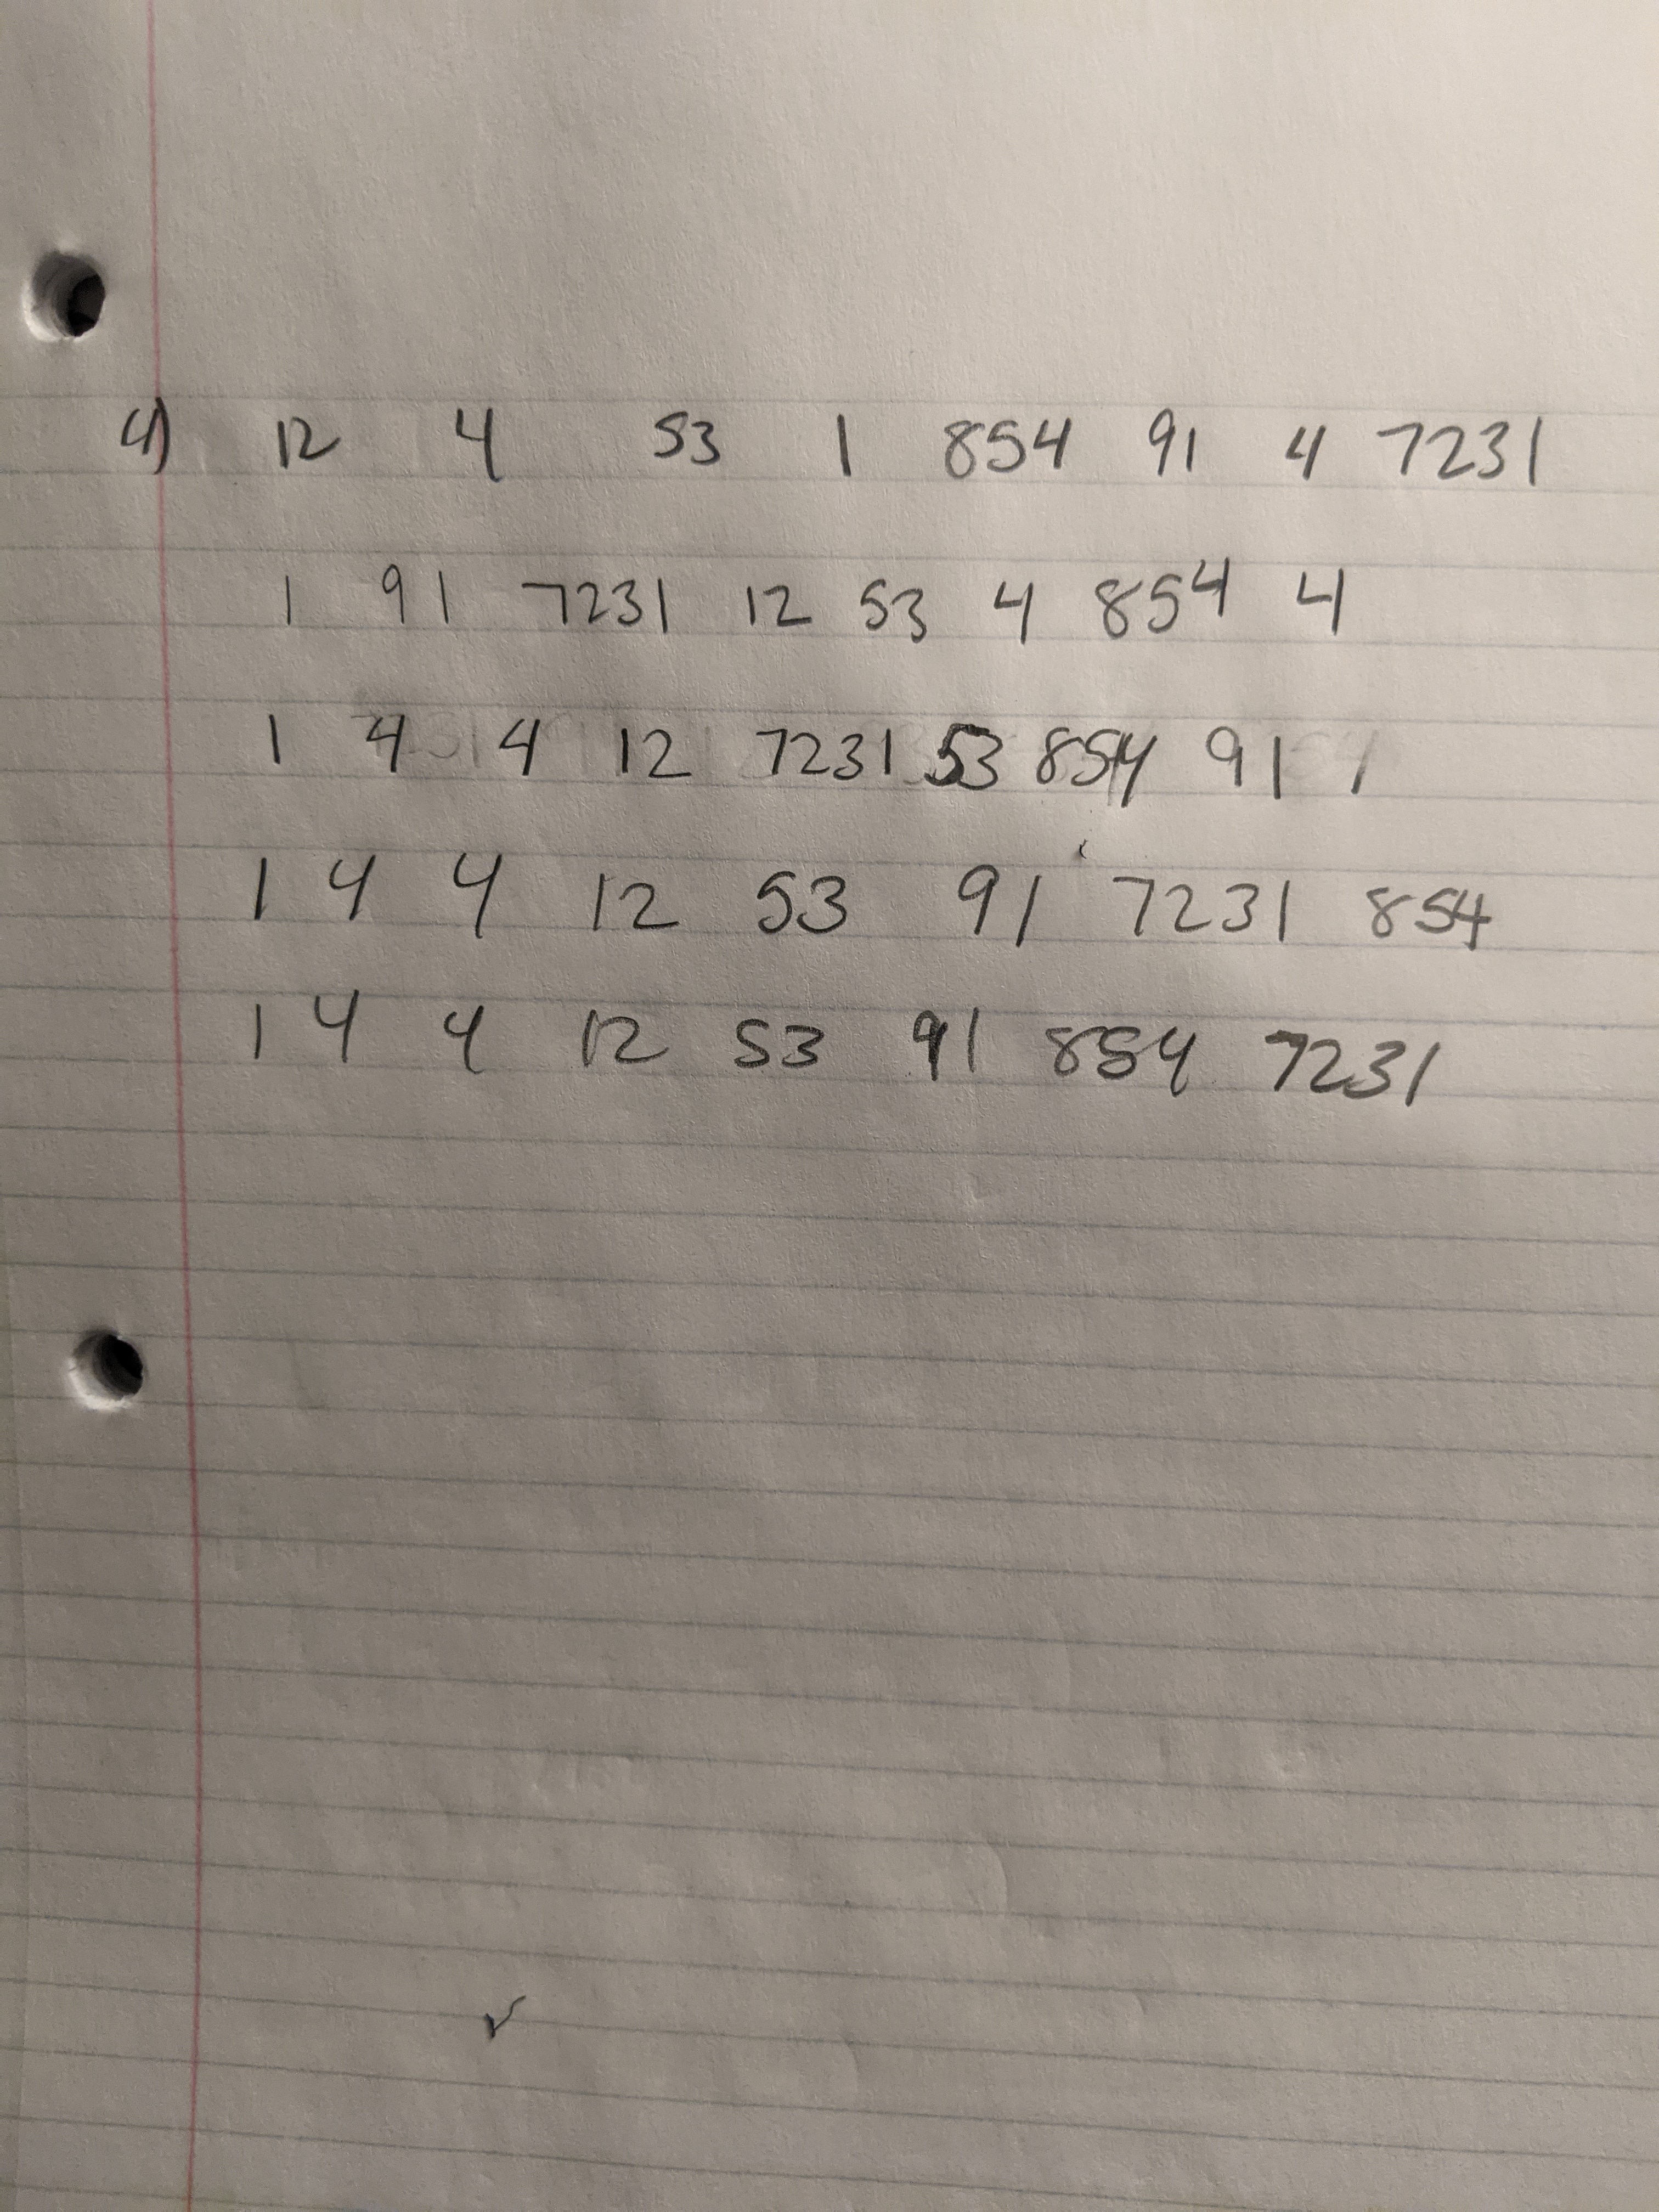 4) 12 4 53 1 854 91 4 7231
1 91 7231 12 53 4 854 4
1 4 4 12 7231 53 854 91
1 4 4 12 53 91 7231 854
1 4 4 12 53 91 854 7231